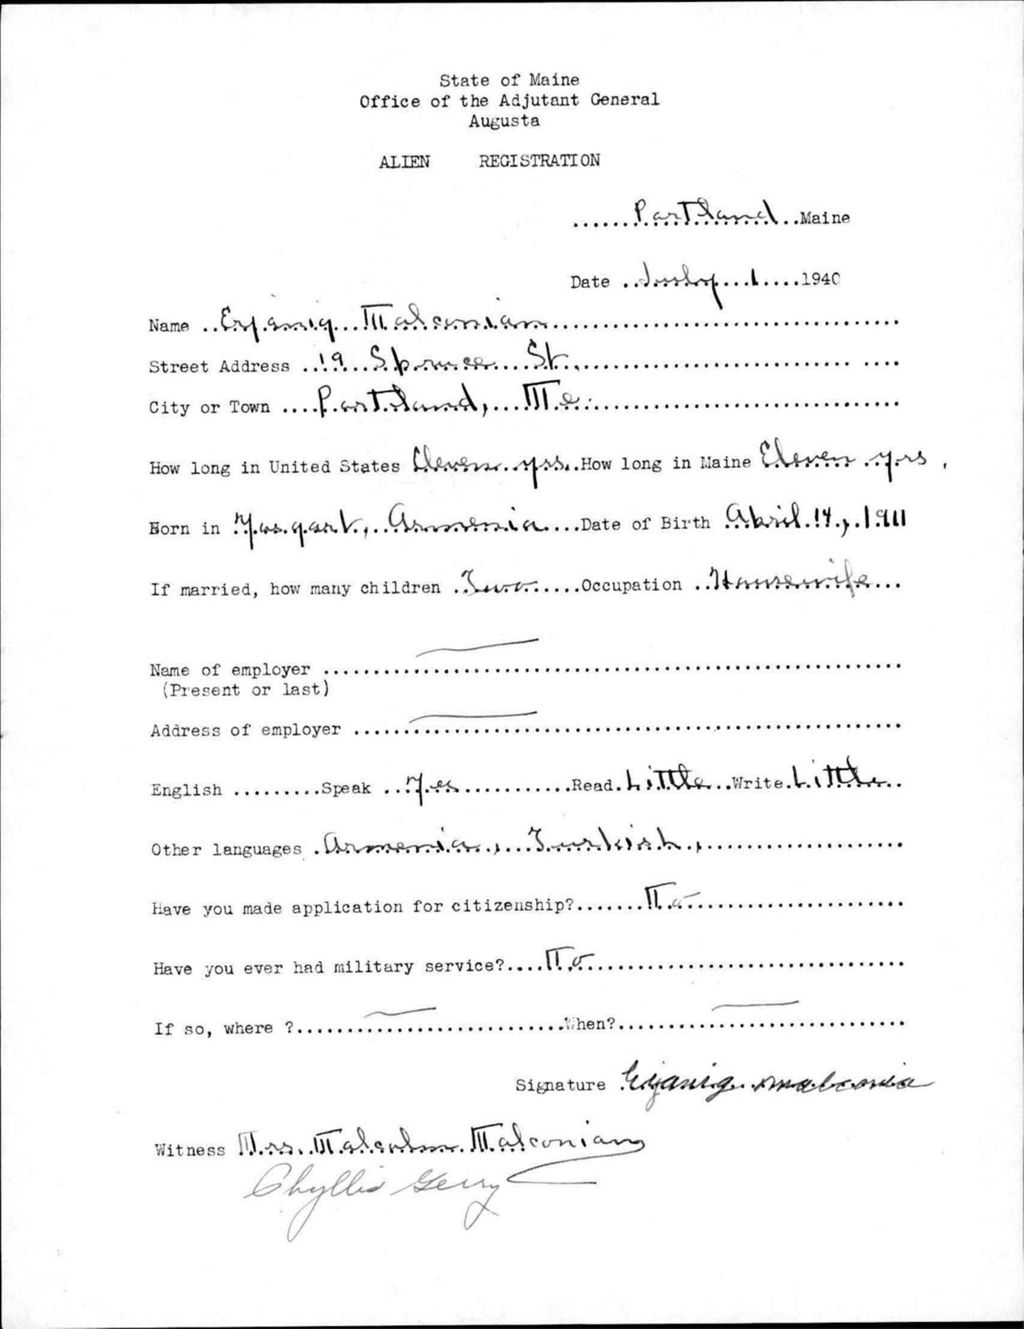 State of Maine
Office of the Adjutant General
Augusta
ALIEN REGISTRATION
......Portland..Maine
Date ..July...1....1940
Name ..Eyjaniq...Malconian..............................
Street Address ..19...Spruce...St.......................
City or Town ....Portland,...Me.........................
How long in United States Eleven..yrs..How long in Maine Eleven..yrs.
Born in Yosgart,..Armenia....Date of Birth .April.14.,.1911
If married, how many children ..Two......Occupation ..Housewife...
Name of employer ..................................................
(Present or last)
Address of employer ...............................................
English .........Speak ..Yes............Read.Little...Write.Little..
Other languages .Armenia.,..Turkish.,....................
Have you made application for citizenship?.......No....................
Have you ever had military service?....No..........................
If so, where ?..........................When?..........................
Signature Eyjaniq malconia
Witness Mrs. Malcolm Malconian
Phyllis Gerry